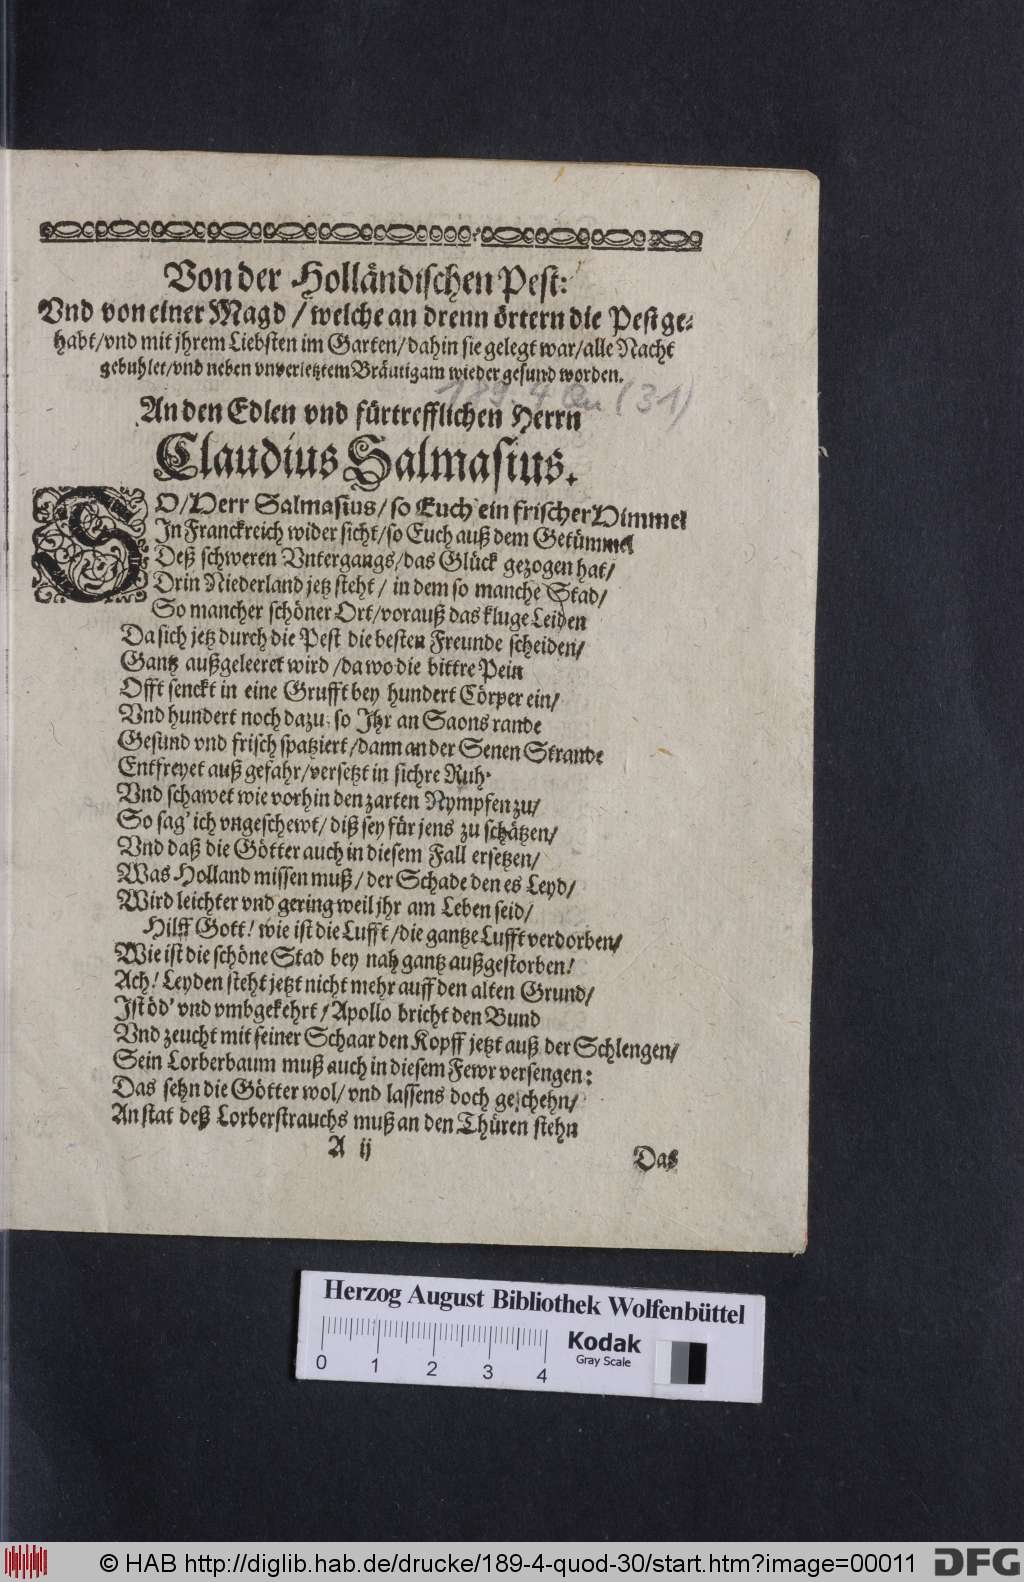 Von der Holländischen Pest:
Vnd von einer Magd / welche an dreyn örtern die Pest ge-
habt/vnd mit jhrem Liebsten im Garten/dahin sie gelegt war/alle Nacht
gebuhlet/vnd neben vnverletztem Bräutigam wieder gesund worden.
189.4 Qu (31)
An den Edlen vnd fürtrefflichen Herrn
Claudius Salmasius.
SO/Herr Salmasius/so Euch ein frischer Himmel
In Franckreich wider sicht/so Euch auß dem Getümmel
Deß schweren Vntergangs/das Glück gezogen hat/
Drin Niederland jetz steht/ in dem so manche Stad/
So mancher schöner Ort/vorauß das kluge Leiden
Da sich jetz durch die Pest die besten Freunde scheiden/
Gantz außgeleeret wird/da wo die bittre Pein
Offt senckt in eine Grufft bey hundert Cörper ein/
Vnd hundert noch dazu: so Ihr an Saons rande
Gesund vnd frisch spatziert/dann an der Senen Strande
Entfreyet auß gefahr/versetzt in sichre Ruh.
Vnd schawet wie vorhin den zarten Nympfen zu/
So sag' ich vngeschewt/ diß sey für jens zu schätzen/
Vnd daß die Götter auch in diesem Fall ersetzen/
Was Holland missen muß/ der Schade den es Leyd/
Wird leichter vnd gering weil jhr am Leben seid/
Hilff Gott! wie ist die Lufft/die gantze Lufft verdorben/
Wie ist die schöne Stad bey nah gantz außgestorben!
Ach! Leyden steht jetzt nicht mehr auff den alten Grund/
Ist öd' vnd vmbgekehrt/Apollo bricht den Bund
Vnd zeucht mit seiner Schaar den Kopff jetzt auß der Schlengen/
Sein Lorberbaum muß auch in diesem Fewr versengen:
Das sehn die Götter wol/ vnd lassens doch geschehn/
An stat deß Lorberstrauchs muß an den Thüren stehn
A ij
Das
Herzog August Bibliothek Wolfenbüttel
Kodak
Gray Scale
0 1 2 3 4
© HAB http://diglib.hab.de/drucke/189-4-quod-30/start.htm?image=00011
DFG